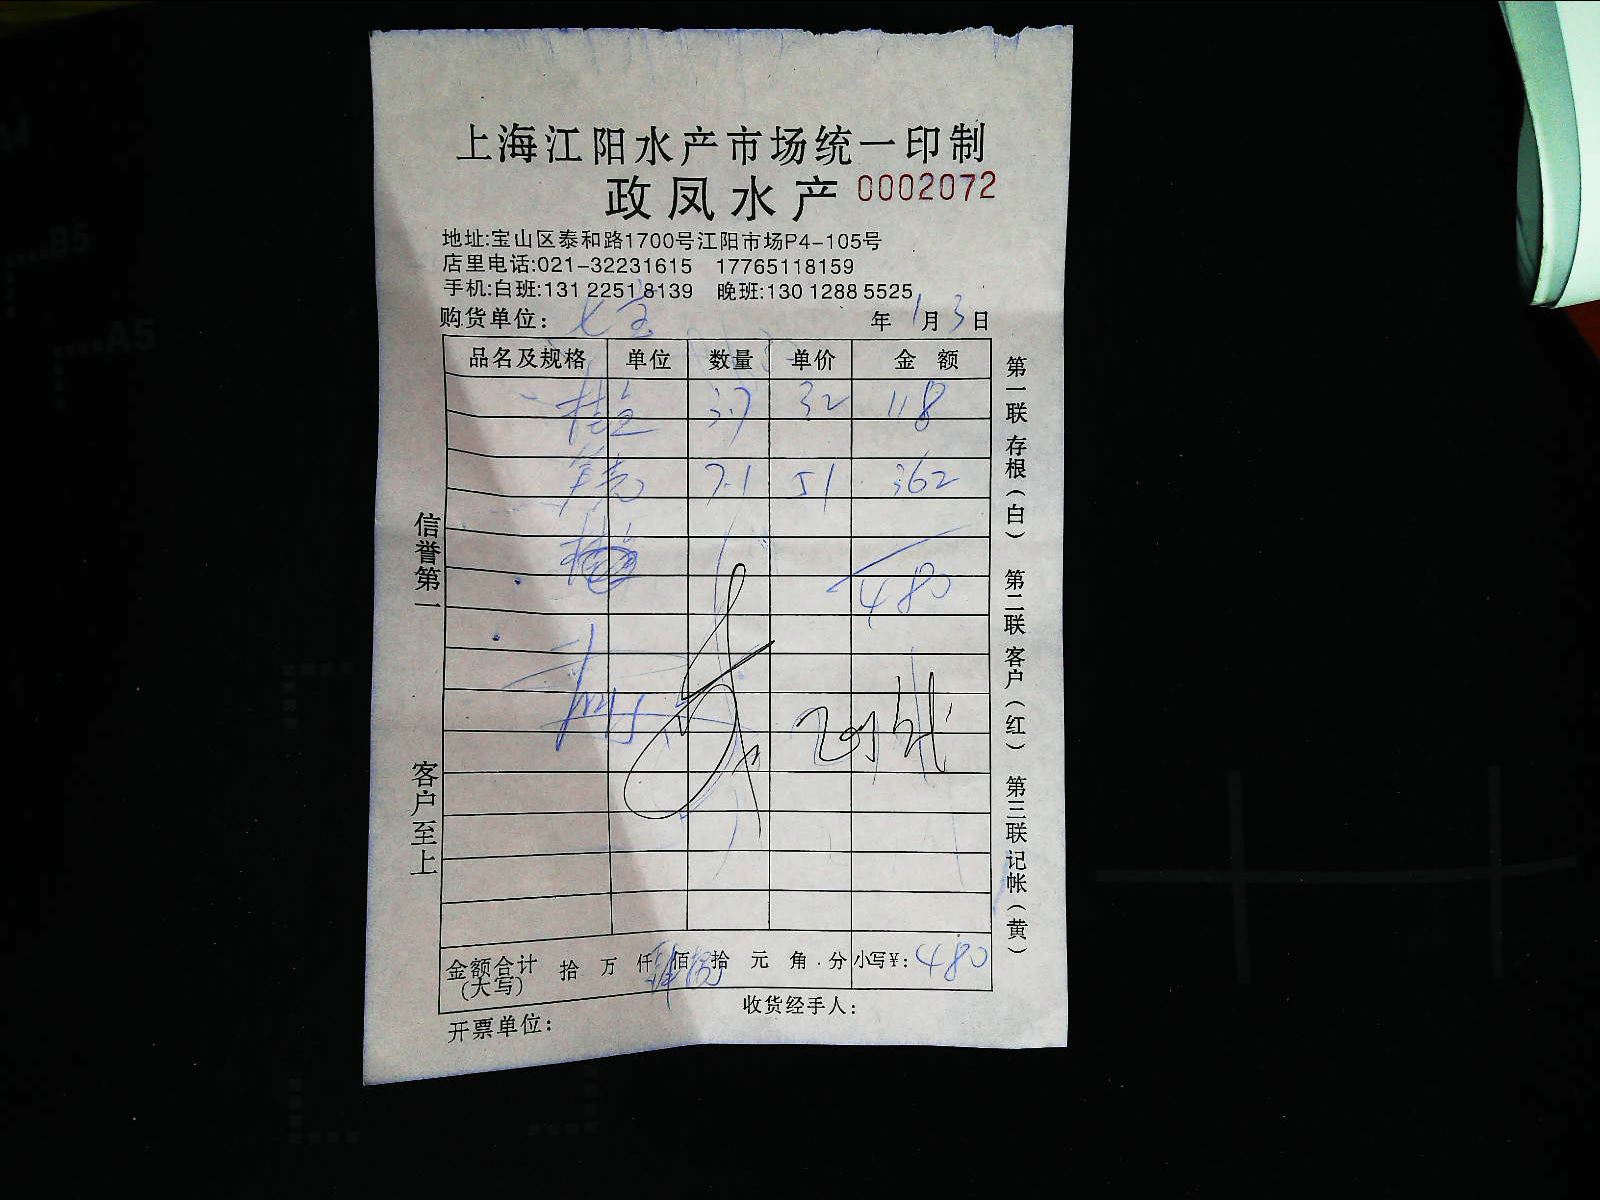 上海江阳水产市场统一印制
政凤水产 0002072
地址:宝山区泰和路1700号江阳市场P4-105号
店里电话:021-32231615 17765118159
手机:白班:131 2251 8139 晚班:130 1288 5525
购货单位: 七宝 年 1月3日
品名及规格 单位 数量 单价 金额
桂鱼 3.7 32 118
7.1 51 362
480
金额合计(大写) 拾 万 仟 佰 拾 元 角 分 小写¥: 480
开票单位: 收货经手人:
信誉第一
客户至上
第一联 存根(白) 第二联 客户(红) 第三联 记帐(黄)
B5
A5